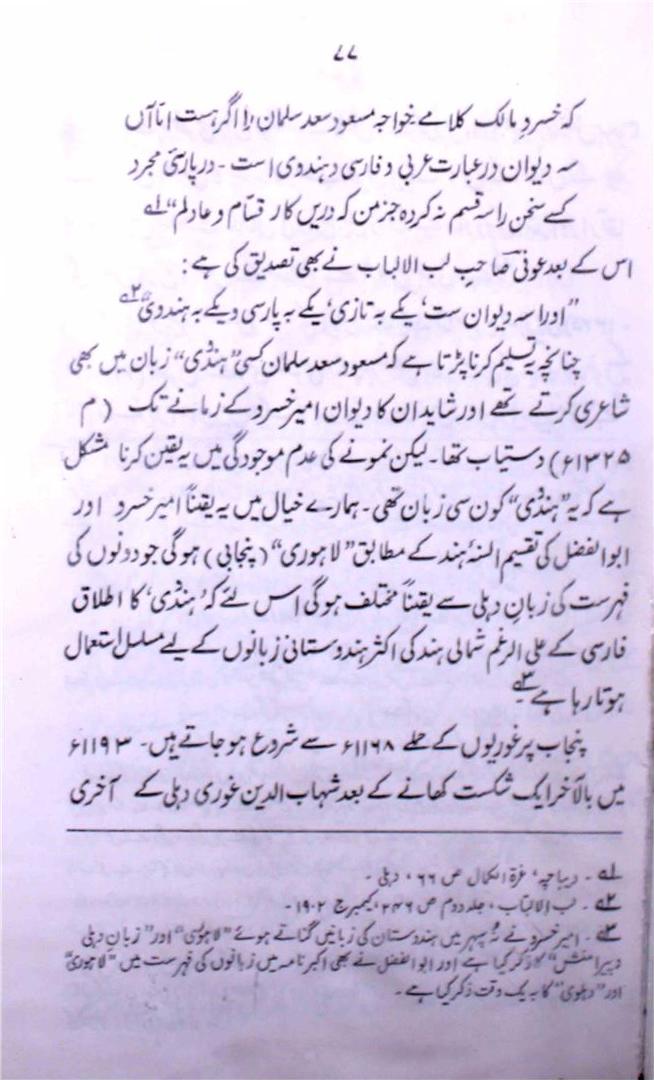 ۷۷
کہ خسرو مالک کلامے خواجہ مسعود سعد سلمان را اگر ہست اما آں
سہ دیوان در عبارت عربی و فارسی و ہندوی است ۔ در پارسیٔ مجرد
کسے سخن را سہ قسم نہ کردہ جز من کہ دریں کار قسام و عادلم“ لے
اس کے بعد عوفی صاحبِ لب الالباب نے بھی تصدیق کی ہے :
”اورا سہ دیوان ست، یکے بہ تازی، یکے بہ پارسی و یکے بہ ہندوی“ ۲ے
چنانچہ یہ تسلیم کرنا پڑتا ہے کہ مسعود سعد سلمان کسی ”ہندی“ زبان میں بھی
شاعری کرتے تھے اور شاید ان کا دیوان امیر خسرو کے زمانے تک (م
۱۳۲۵ء) دستیاب تھا۔ لیکن نمونے کی عدم موجودگی میں یہ یقین کرنا مشکل
ہے کہ یہ ”ہندی“ کون سی زبان تھی۔ ہمارے خیال میں یہ یقناً امیر خسرو اور
ابوالفضل کی تقسیم السنۂ ہند کے مطابق ”لاہوری“ (پنجابی) ہوگی جو دونوں کی
فہرست کی زبانِ دہلی سے یقناً مختلف ہوگی اس لئے کہ ’ہندی‘ کا اطلاق
فارسی کے علی الرغم شمالی ہند کی اکثر ہندوستانی زبانوں کے لیے مسلسل استعمال
ہوتا رہا ہے ۳ے
پنجاب پر غوریوں کے حملے ۱۱۶۸ء سے شروع ہو جاتے ہیں۔ ۱۱۹۳ء
میں بالآخر ایک شکست کھانے کے بعد شہاب الدین غوری دہلی کے آخری
لے ۔ دیباچہ، غرۃ الکمال ص ۶۶، دہلی ۔
۲ے ۔ لب الالباب، جلد دوم ص ۲۴۶، کیمبرج ۱۹۰۲۔
۳ے ۔ امیر خسرو نے نُہ سپہر میں ہندوستان کی زبانیں گناتے ہوئے ”لاہوری“ اور ”زبانِ دہلی
و پیرامنش“ کا ذکر کیا ہے اور ابوالفضل نے بھی اکبر نامہ میں زبانوں کی فہرست میں ”لاہوری“
اور ”دہلوی“ کا بہ یک وقت ذکر کیا ہے ۔